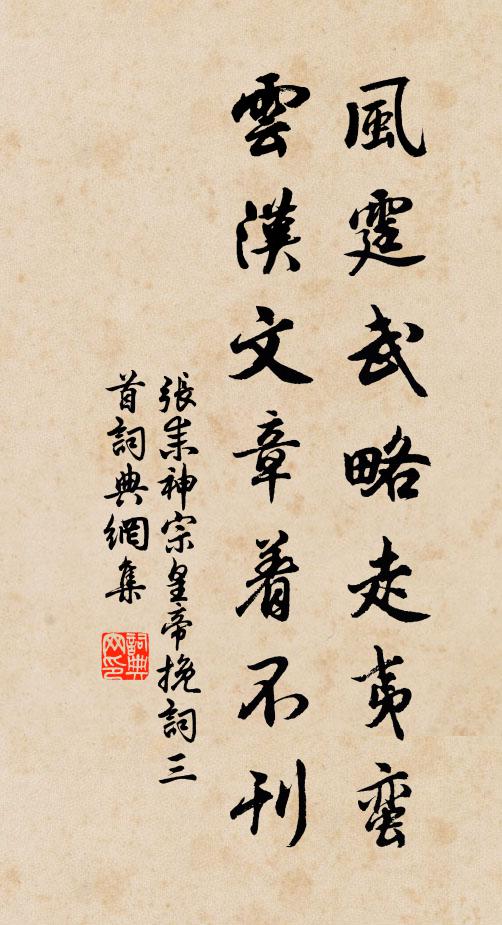 風霆武略走夷蛮
雲漢文章着不刊
張耒神宗皇帝挽詞三
首詞典網集
詞典
网印